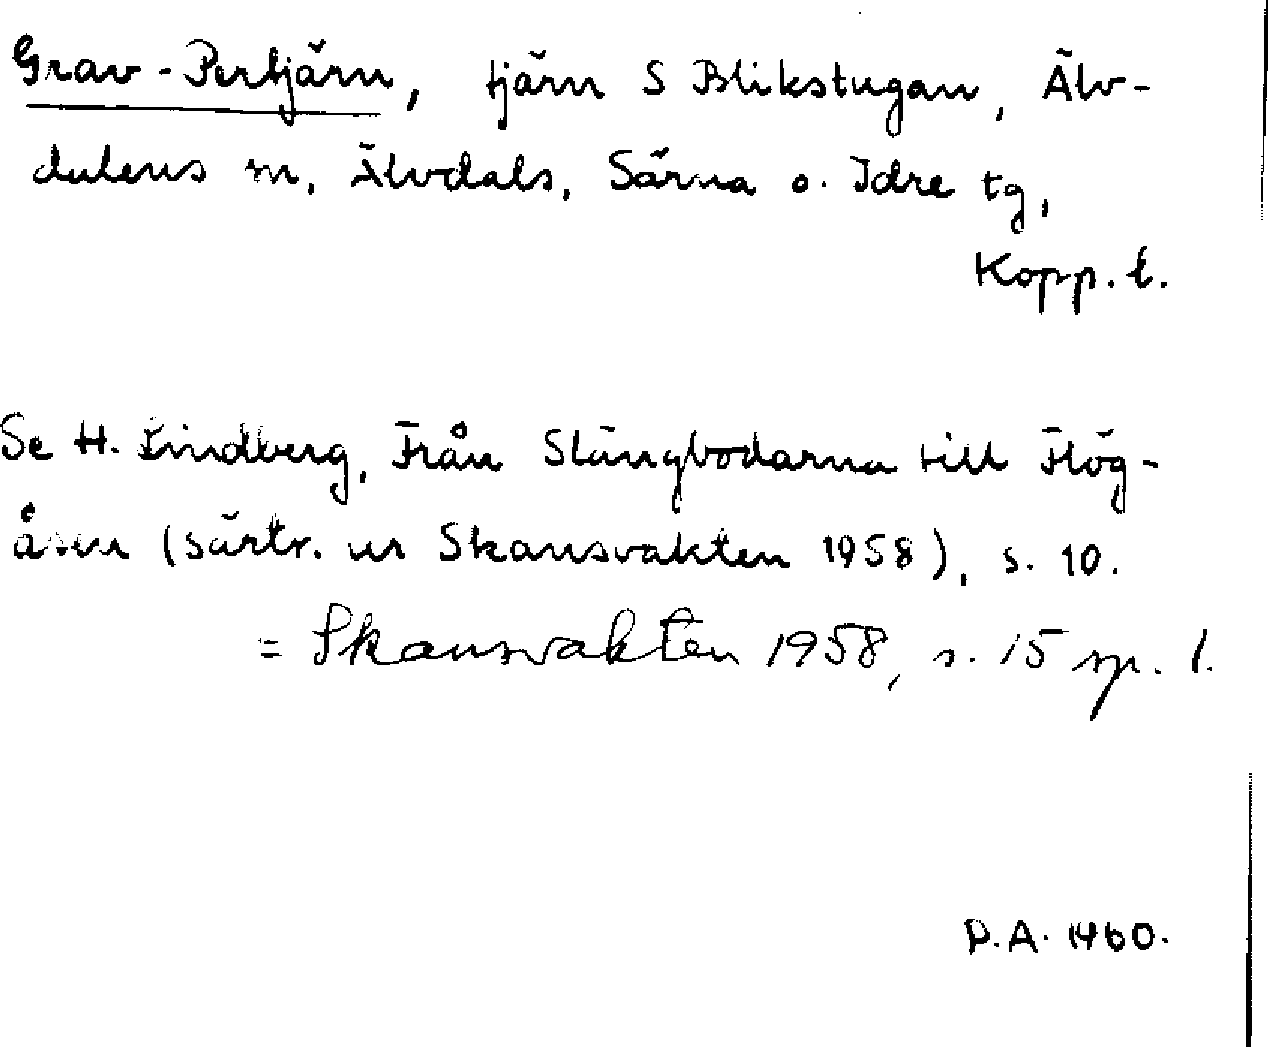 Grav-Pertjärn, tjärn S Blikstugan, Älv-
dalens sn, Älvdals, Särna o. Idre tg,
Kopp. l.
Se H. Lindberg, Från Stängbodarna till Hög-
åsen (särtr. ur Skansvakten 1958), s. 10.
= Skansvakten 1958, s. 15 sp. 1.
D.A. 1960.